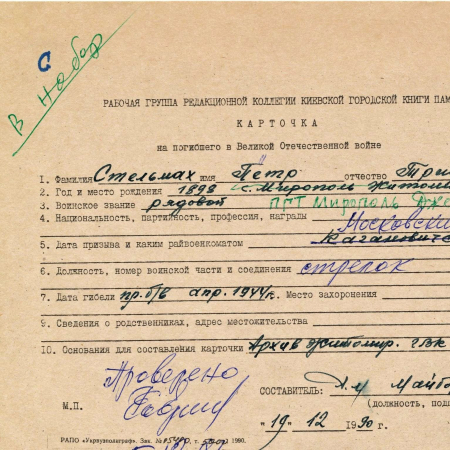 С
В набор
РАБОЧАЯ ГРУППА РЕДАКЦИОННОЙ КОЛЛЕГИИ КИЕВСКОЙ ГОРОДСКОЙ КНИГИ ПАМ
КАРТОЧКА
на погибшего в Великой Отечественной войне
1. Фамилия Стельмах имя Пётр отчество
2. Год и место рождения 1898 с. Мирополь Житом
3. Воинское звание рядовой ПГТ Мирополь Дже
4. Национальность, партийность, профессия, награды
Московски
5. Дата призыва и каким райвоенкоматом Кагановичс
6. Должность, номер воинской части и соединения стрелок
7. Дата гибели пр.б/в апр. 1944г. Место захоронения
9. Сведения о родственниках, адрес местожительства
10. Основания для составления карточки Архив Житомир. ГВК
Проверено
СОСТАВИТЕЛЬ: Майбо
(должность, под
М.П.
"19" 12 1990
РАПО «Укрвузполиграф». Зак. № 1990.